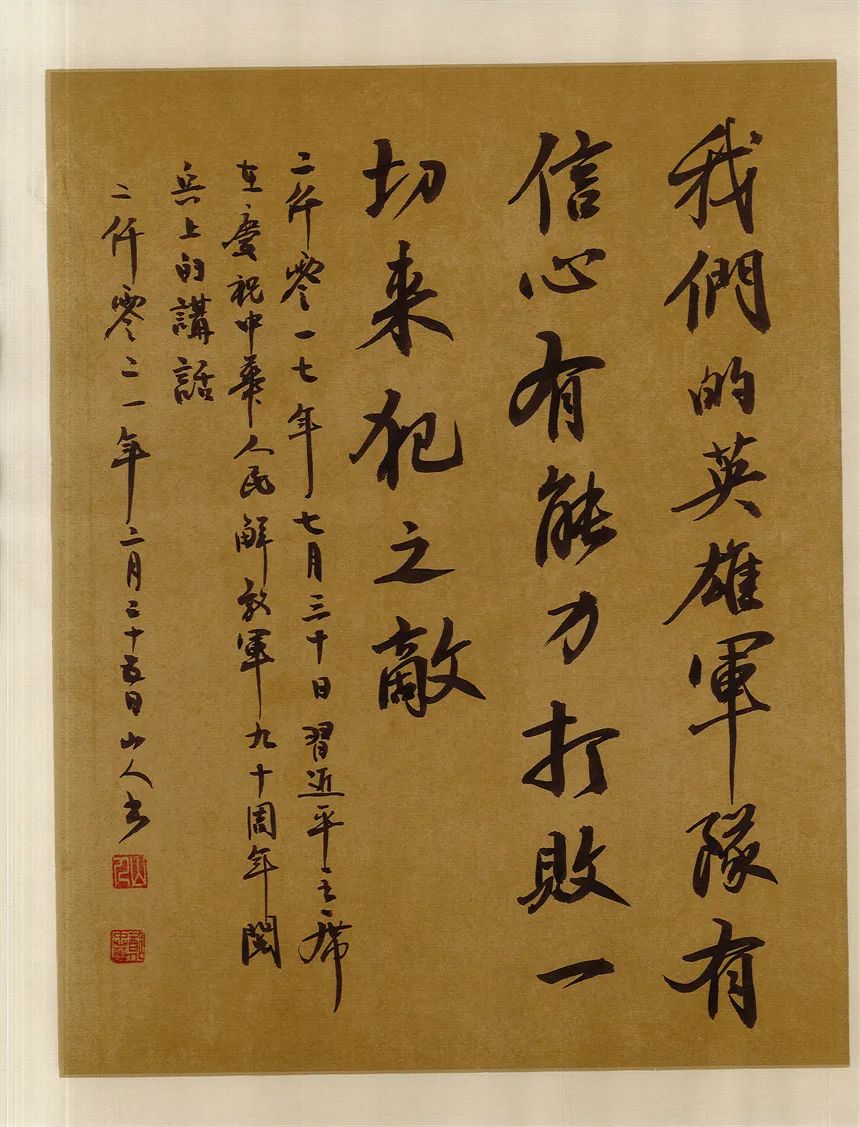 我們的英雄軍隊有
信心有能力打敗一
切来犯之敵
二仟零一七年七月三十日習近平主席
在慶祝中華人民解放軍九十周年閱
兵上的講話
二仟零二一年二月二十五日山人书